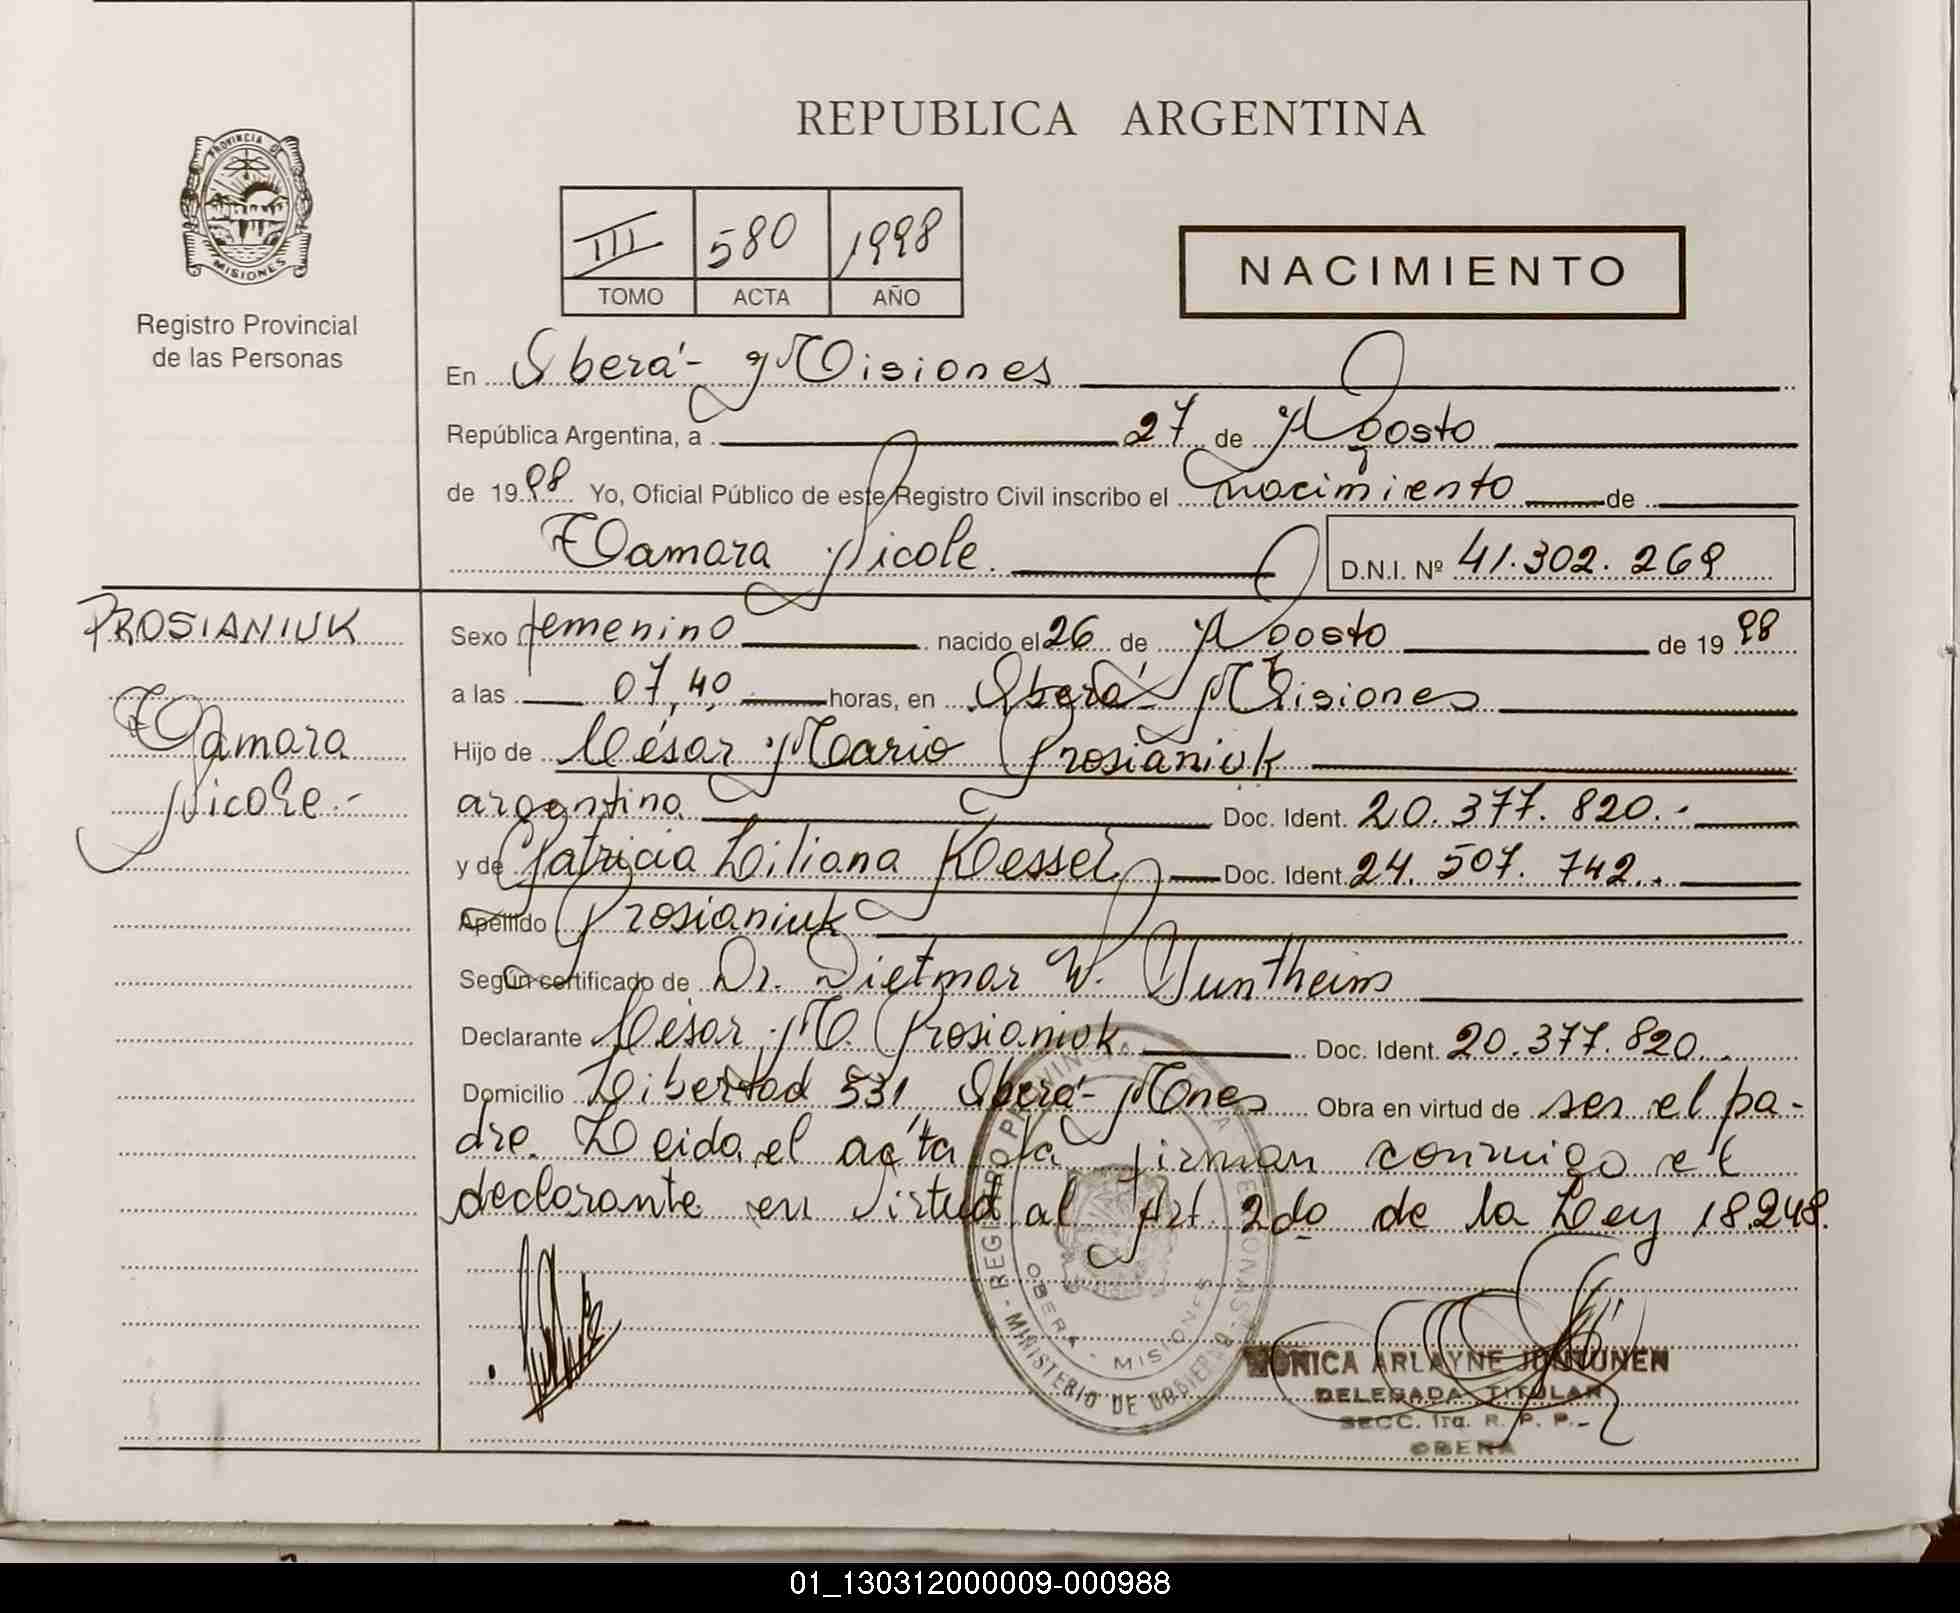 REPUBLICA ARGENTINA
PROVINCIA DE
MISIONES
Registro Provincial
de las Personas
III 580 1998
TOMO ACTA AÑO
NACIMIENTO
En Oberá - Misiones
República Argentina, a 27 de Agosto
de 1998 Yo, Oficial Público de este Registro Civil inscribo el nacimiento de
Tamara Nicole.
D.N.I. Nº 41.302.269
PROSIANIUK
Tamara
Nicole.-
Sexo femenino nacido el 26 de Agosto de 1998
a las 07,40 horas, en Oberá - Misiones
Hijo de César Mario Prosianiuk
argentino Doc. Ident. 20.377.820.-
y de Patricia Liliana Kessel Doc. Ident. 24.507.742..
Apellido Prosianiuk
Según certificado de Dr. Dietmar W. Guntheim
Declarante César M. Prosianiuk Doc. Ident. 20.377.820.
Domicilio Libertad 531 Oberá - Mnes Obra en virtud de ser el pa-
dre. Leida el acta, la firman conmigo el
declarante en virtud al Art 2do de la Ley 18.248.
REGISTRO PROVINCIAL DE LAS PERSONAS - MINISTERIO DE GOBIERNO -
OBERA - MISIONES
MONICA ARLAYNE JUNTUNEN
DELEGADA TITULAR
SECC. 1ra. R. P. P.-
OBERA
01_130312000009-000988